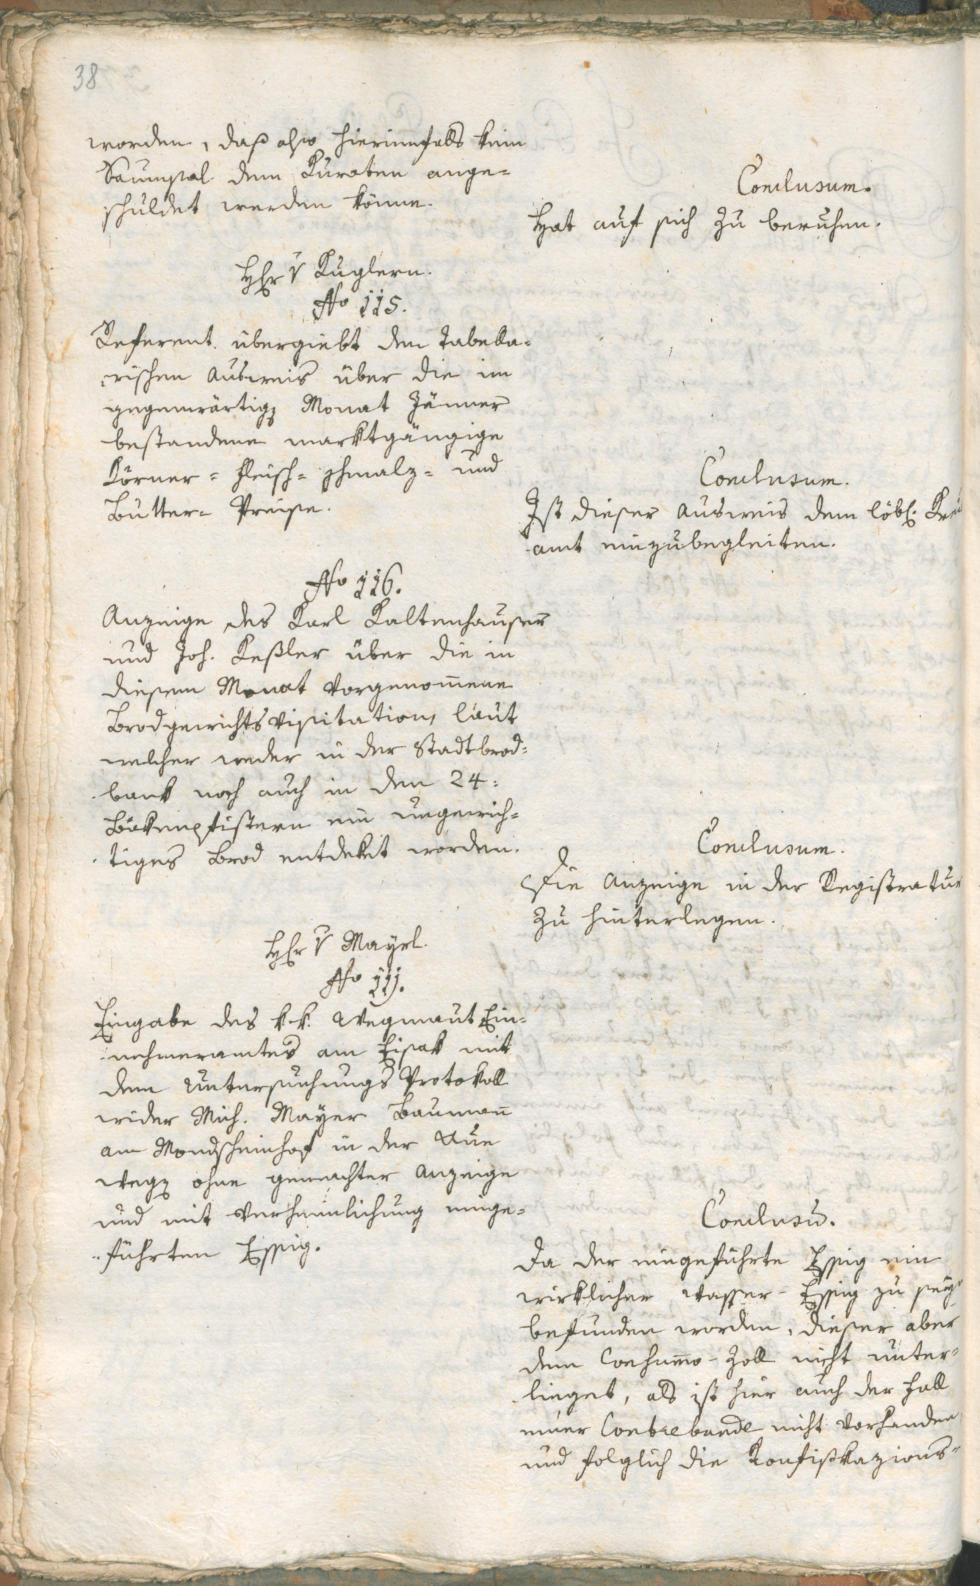 38
worden, daß also hierinnfalls kein
Saumsal dem Kuraten ange=
schuldet werden könne.
Conclusum.
Hat auf sich zu beruhen.
H[err] v Kuglern.
No 115.
Referent übergiebt den Tabella=
rischen Ausweis über die im
gegenwärtig[en] Monat Jänner
bestandene marktgängige
Körner= Fleisch= Schmalz= und
Butter= Preise.
Conclusum.
Ist dieser Ausweis dem löbl. Kreis
amt einzubegleiten.
No 116.
Anzeige des Karl Kaltenhauser
und Joh. Keßler über die in
diesem Monat vorgenom̄ene
Brodgewichtsvisitation, laut
welcher weder in der Stadtbrod=
bank noch auch in den 24:
Bökenpfistern ein ungewich=
tiges Brod entdekt worden.
Conclusum.
Die Anzeige in der Registratur
zu hinterlegen.
H[err] v Mayrl.
No 111.
Eingabe des k.k. Wegmaut Ein=
nehmeramtes am Eisak mit
dem Untersuchungs Protokoll
wider Mich. Mayer Bauman̄
am Mondscheinhof in der Aue
weg[en] ohne gemachter Anzeige
und mit Verheimlichung einge=
führten Essig.
Conclusū.
Da der eingeführte Essig ein
wirklicher Wasser-Essig zu seyn
befunden worden, dieser aber
dem Consum̄o-Zoll nicht unter=
lieget, als ist hier auch der Fall
einer Contrebande nicht vorhanden
und folglich die Konfiskazions=